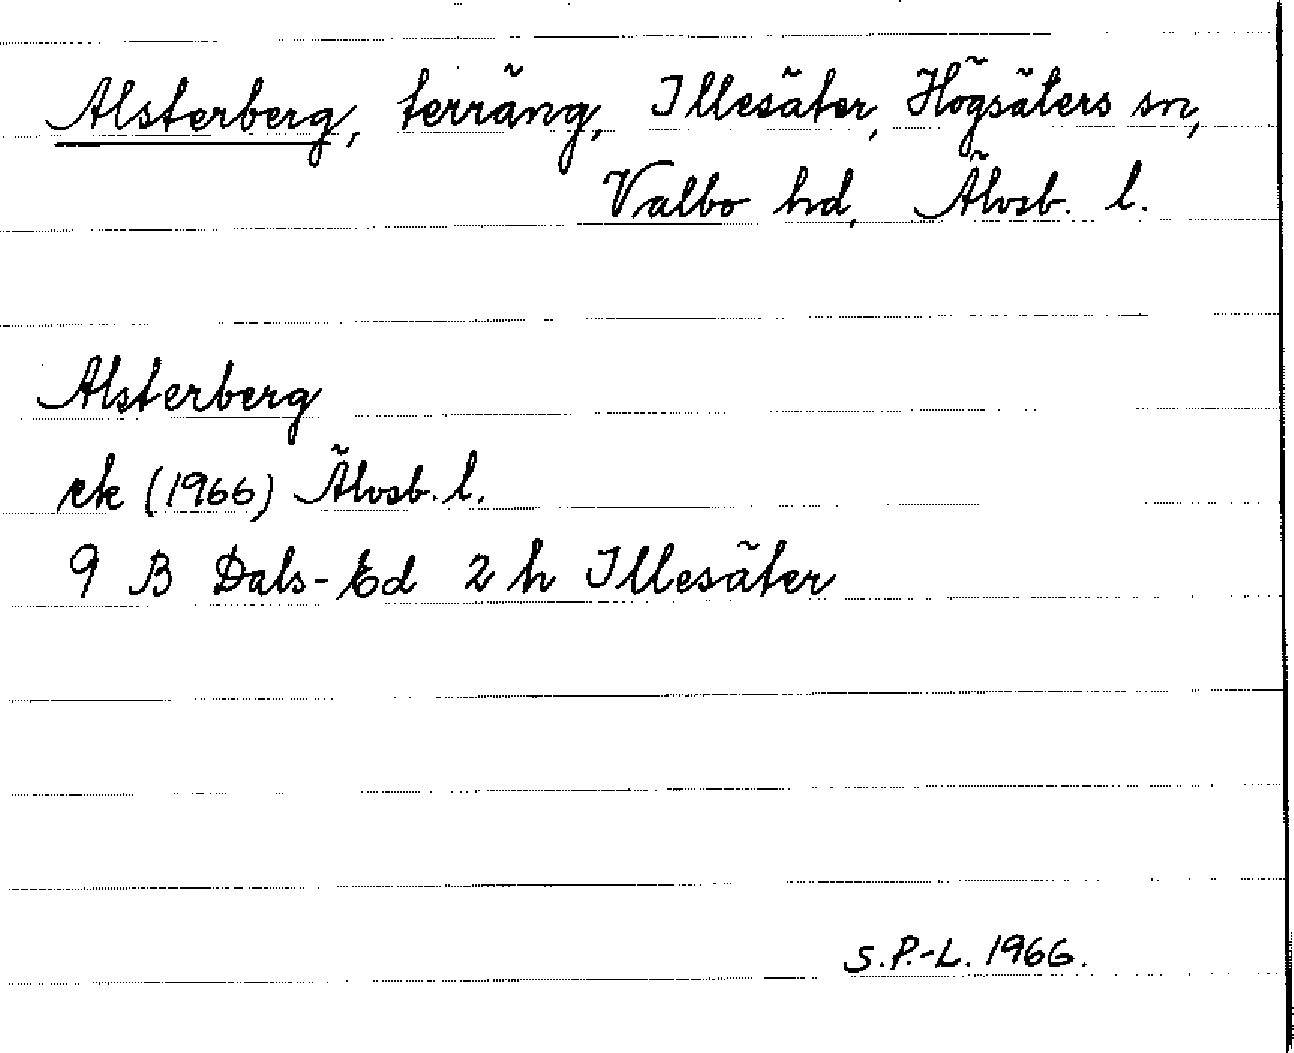 Alsterberg, terräng, Illesäter, Högsäters sn,
Valbo hd, Älvsb. l.
Alsterberg
rk (1966) Älvsb. l.
9 B Dals-Ed 2 h Illesäter
S.P.-L. 1966.